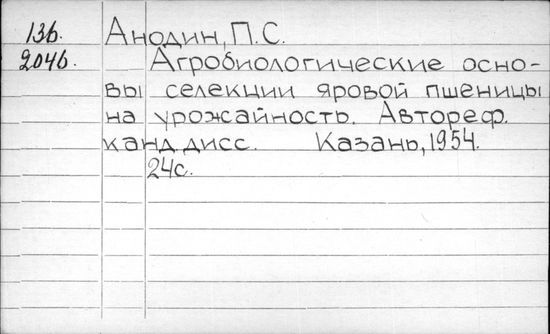 13б. Анодин, П.С.
204б. Агробиологические осно-
вы селекции яровой пшеницы
на урожайность. Автореф.
канд. дисс. Казань, 1954.
24с.